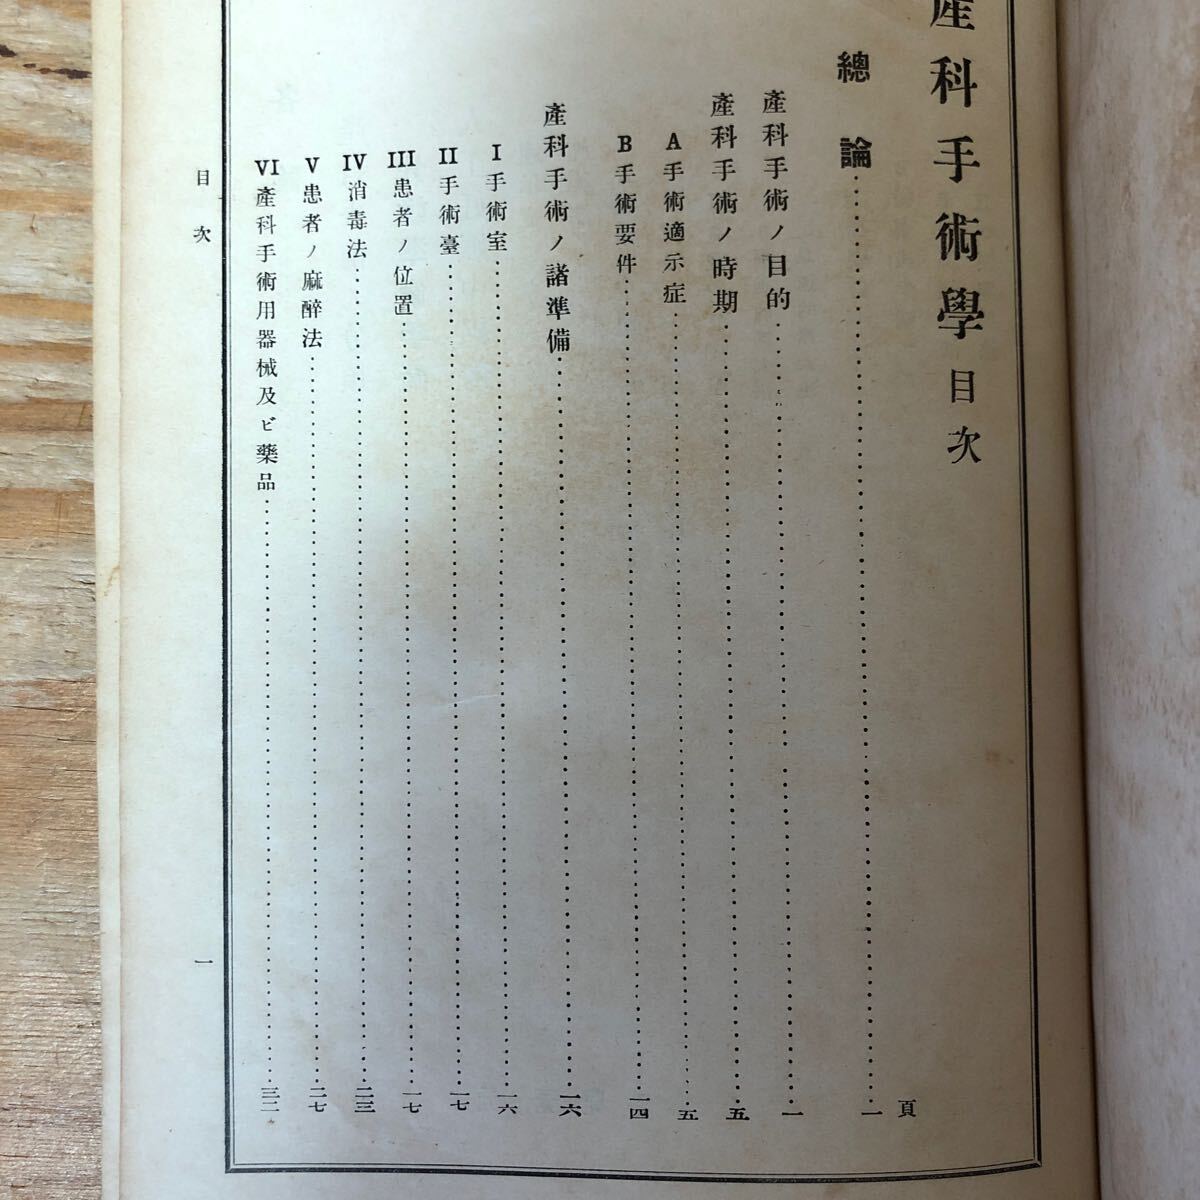 產科手術學目次
頁
總論……一
產科手術ノ目的……一
產科手術ノ時期……五
A手術適示症……五
B手術要件……一四
產科手術ノ諸準備……一六
I手術室……一六
II手術臺……一七
III患者ノ位置……一七
IV消毒法……二三
V患者ノ麻醉法……二七
VI產科手術用器械及ビ藥品……三二
目次
一